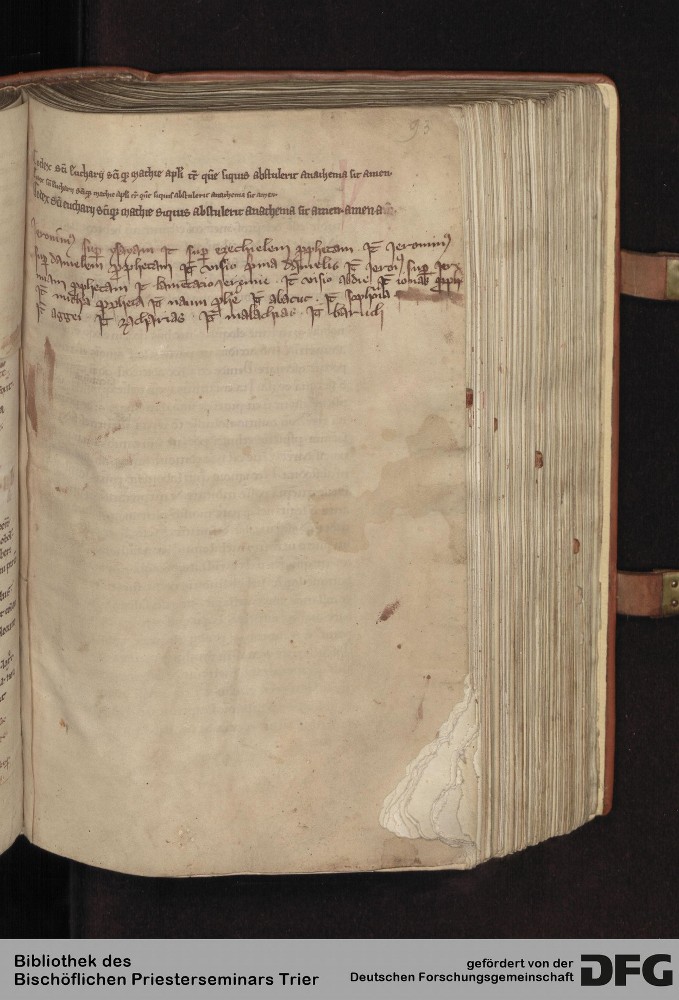 93
Codex sci Eucharij sciq; mathie apli re que siquis abstulerit anathema sit amen.
sci Eucharij sciq; mathie apli que siquis abstulerit anathema sit amen.
Codex sci eucharij sciq; mathie siquis abstulerit anathema sit amen. amen. a
Jeronim9 sup ysayam It sup ezechielem pphetam It Jeronim9
sup danielem pphetam It visio pma danielis It Jeroi9 sup Jere
miam pphetam It lamētacio Jeremie . It visio abdie It ionas pphe
It michea ppheta It naum pphe It abacuc . It sophonia
It aggei It zacharias . It malachias . It baruch
Bibliothek des
Bischöflichen Priesterseminars Trier
gefördert von der
Deutschen Forschungsgemeinschaft
DFG